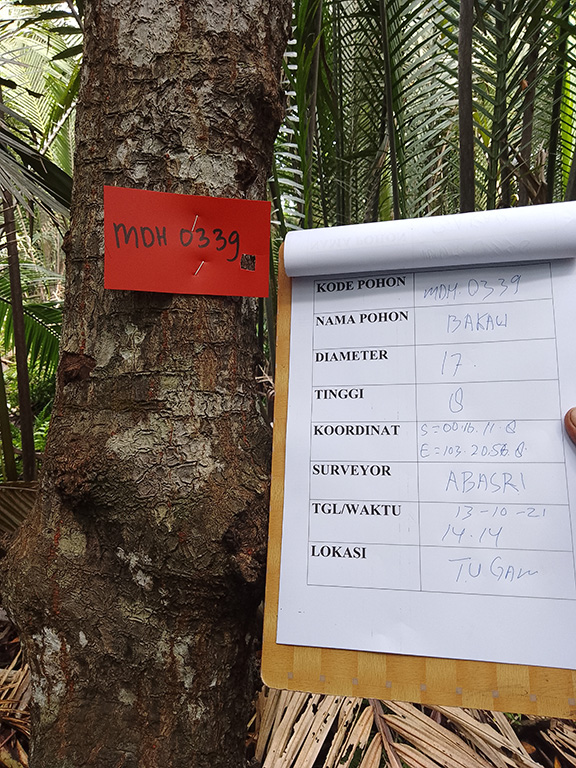 MDH 0339
KODE POHON MDH. 0339
NAMA POHON BAKAU
DIAMETER 17.
TINGGI 8
KOORDINAT S=00.16.11.8
E=103.20.58.8.
SURVEYOR ABASRI
TGL/WAKTU 13-10-21
14.14
LOKASI TUGAU